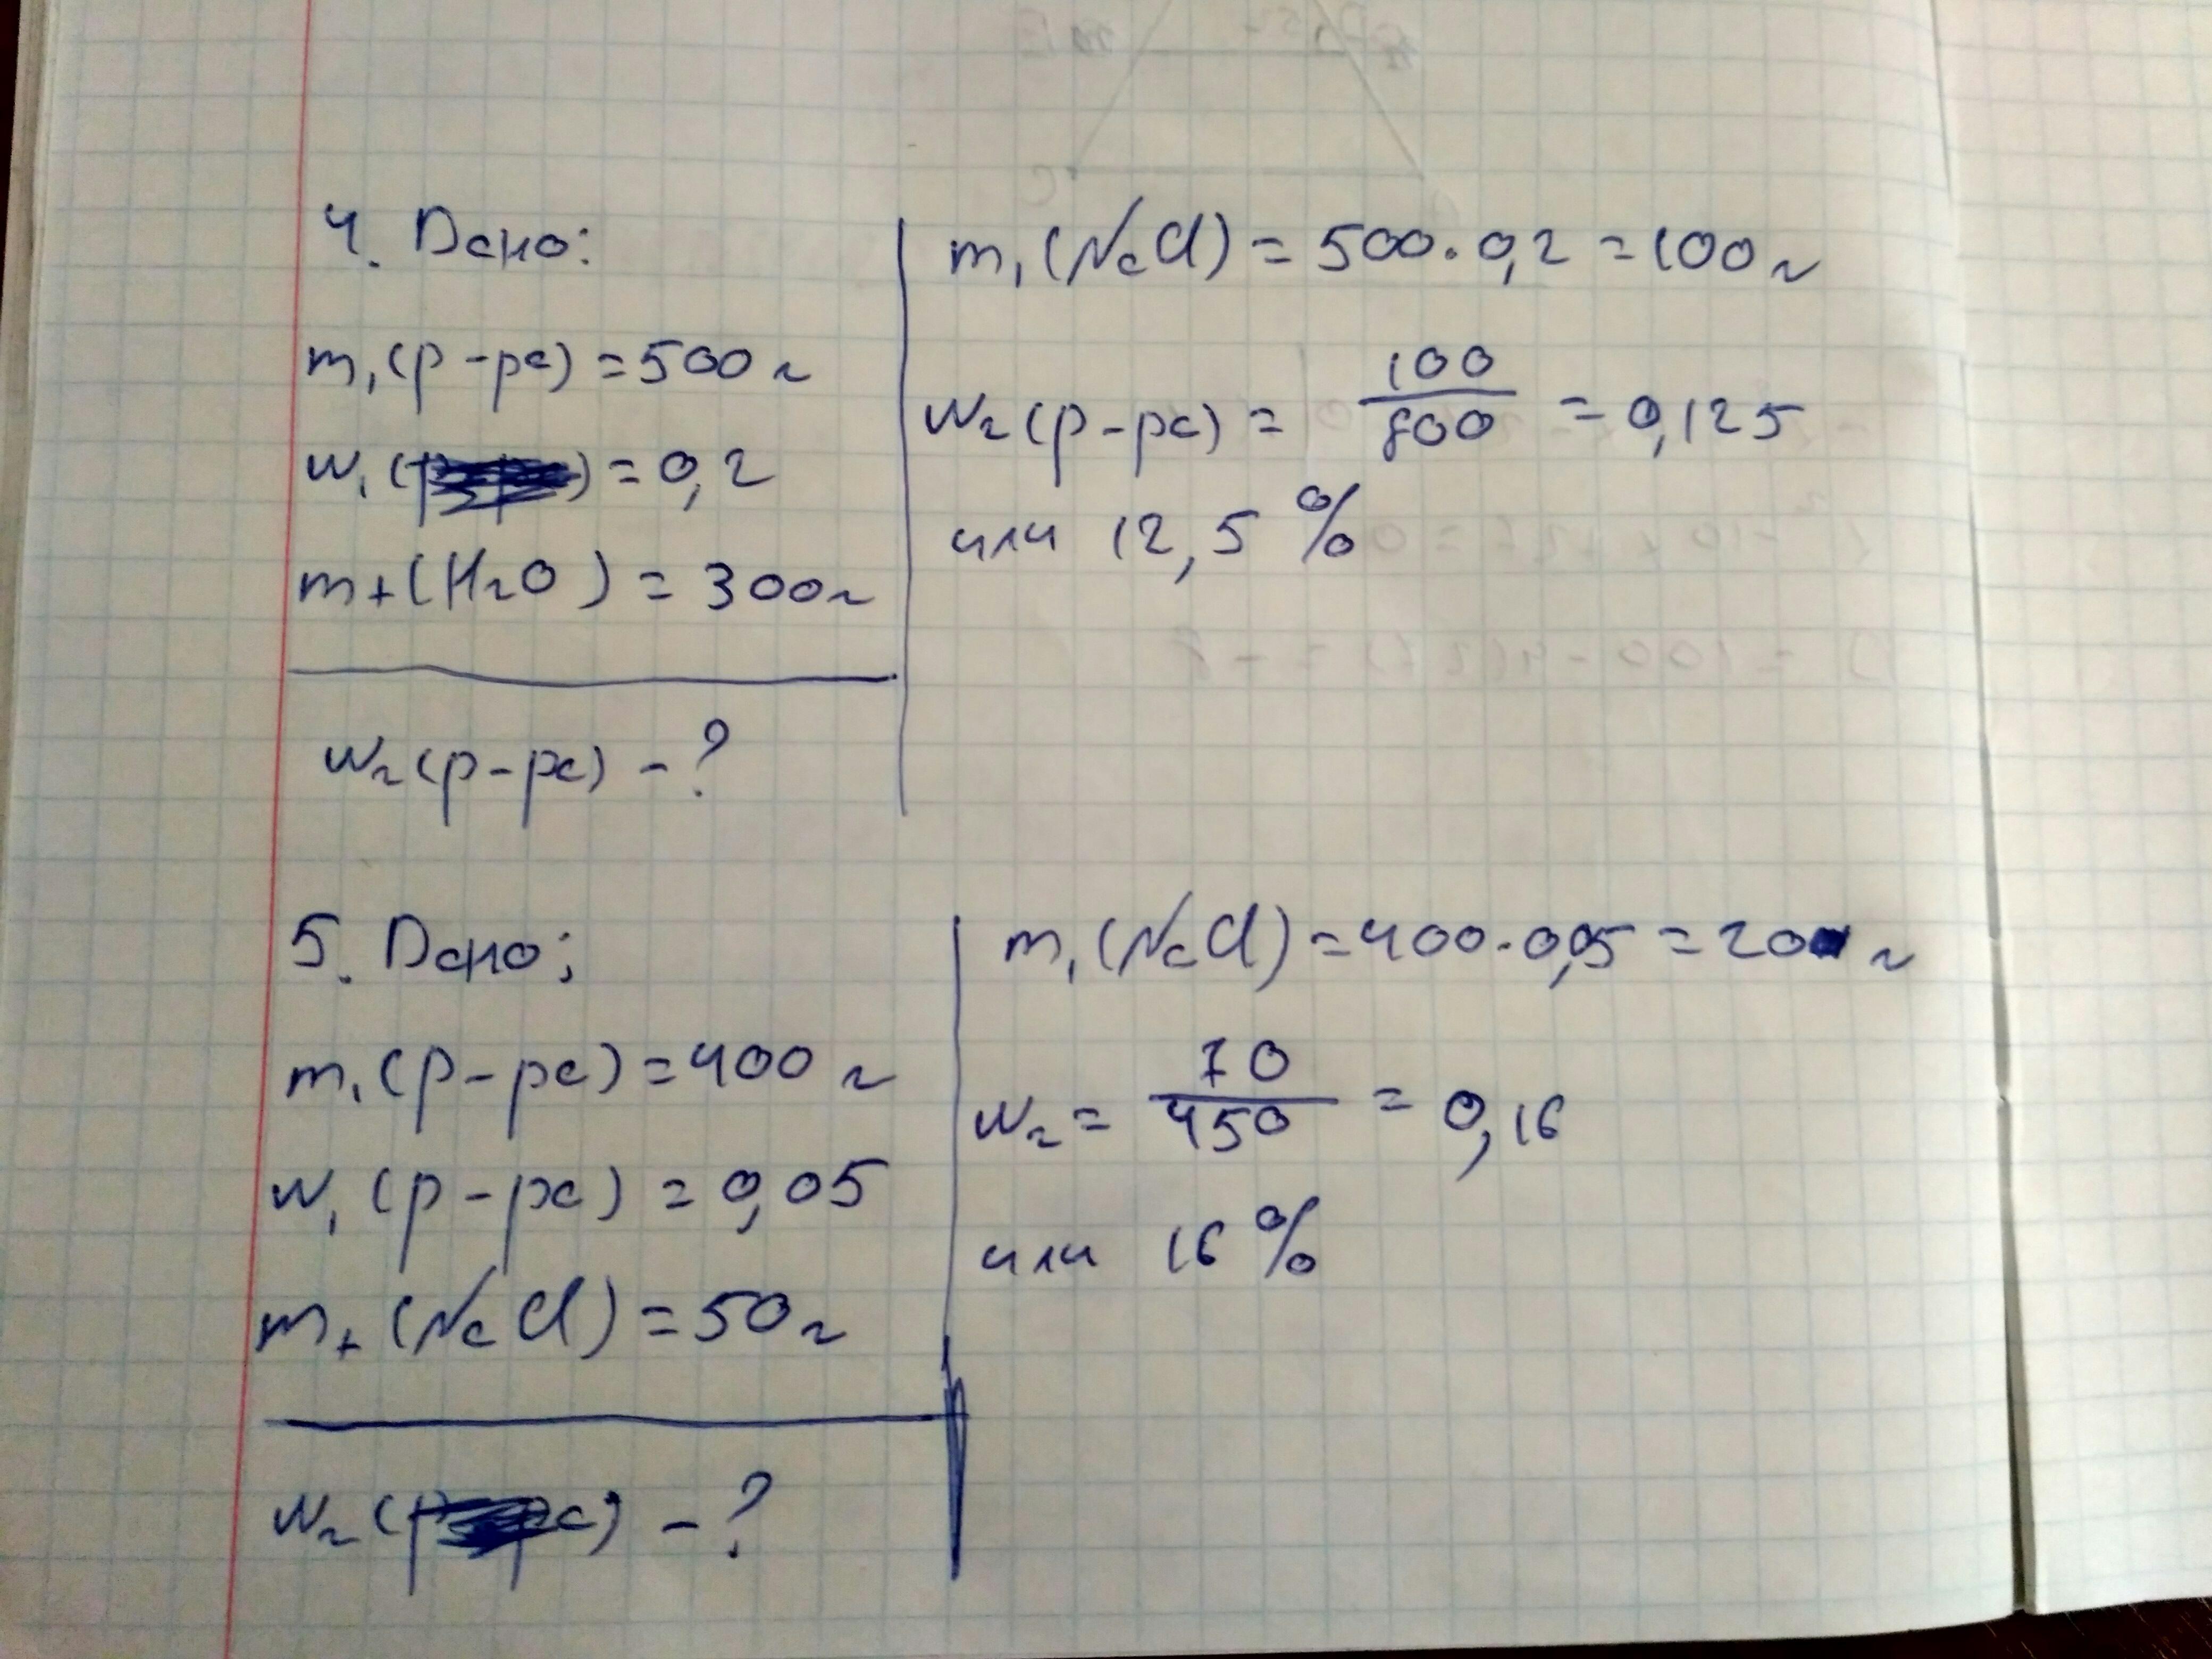 4. Дано:
m₁(р-ра) = 500 г
w₁( ) = 0,2
m+(H₂O) = 300г
w₂(р-ра) - ?
m₁(NaCl) = 500·0,2 = 100 г
w₂(р-ра) = 100/800 = 0,125
или 12,5 %
5. Дано:
m₁(р-ра) = 400 г
w₁(р-ра) = 0,05
m+(NaCl) = 50 г
w₂( ) - ?
m₁(NaCl) = 400·0,05 = 20 г
w₂ = 70/450 = 0,16
или 16 %